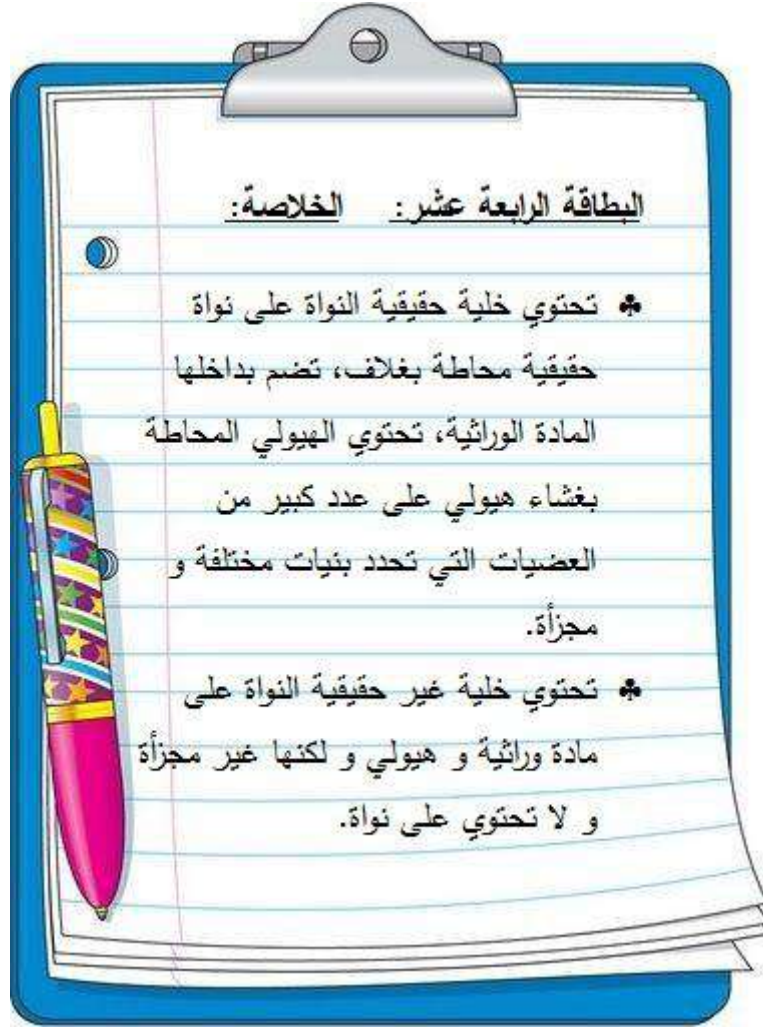 البطاقة الرابعة عشر: الخلاصة:
♣ تحتوي خلية حقيقية النواة على نواة
حقيقية محاطة بغلاف، تضم بداخلها
المادة الوراثية، تحتوي الهيولي المحاطة
بغشاء هيولي على عدد كبير من
العضيات التي تحدد بنيات مختلفة و
مجزأة.
♣ تحتوي خلية غير حقيقية النواة على
مادة وراثية و هيولي و لكنها غير مجزأة
و لا تحتوي على نواة.